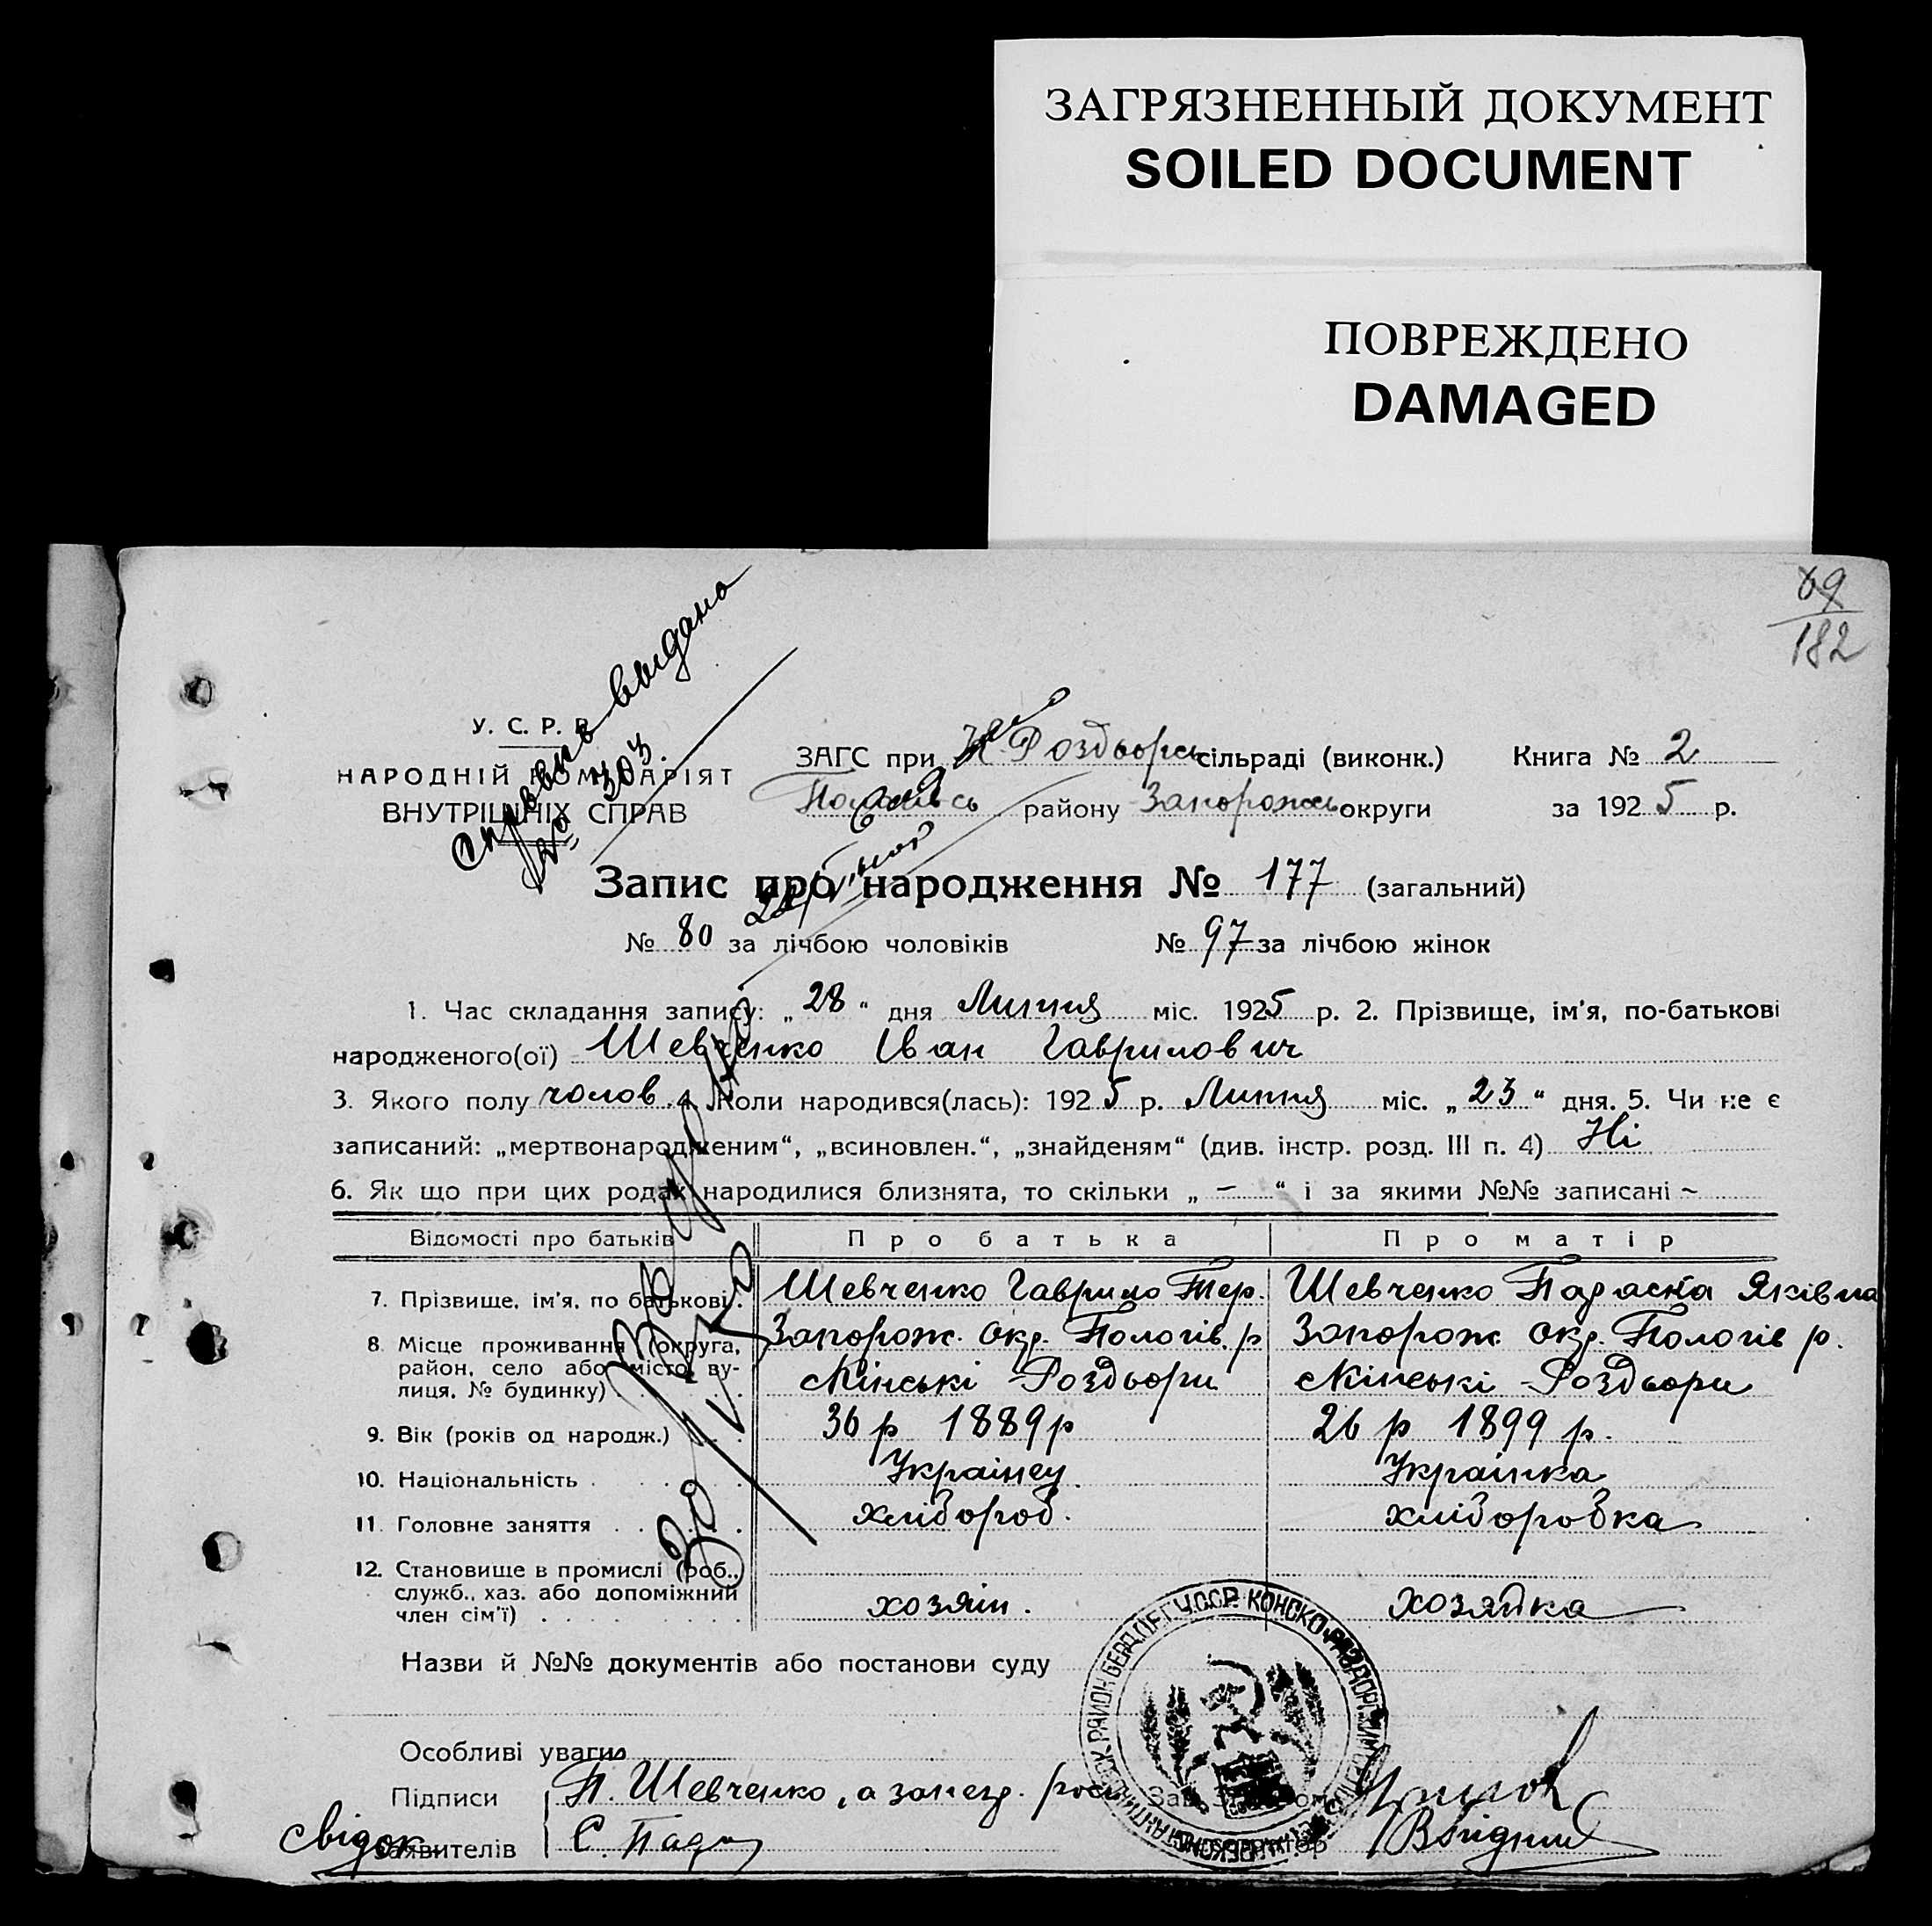 ЗАГРЯЗНЕННЫЙ ДОКУМЕНТ
SOILED DOCUMENT
ПОВРЕЖДЕНО
DAMAGED
69
182
выдано
№ 303
У. С. Р. Р.
НАРОДНІЙ КОМІСАРІЯТ
ВНУТРІШНІХ СПРАВ
ЗАГС при К-Роздорсь сільраді (виконк.) Книга № 2
району Запорожсь округи за 1925 р.
Запис про народження № 177 (загальний)
№ 80 за лічбою чоловіків № 97 за лічбою жінок
1. Час складання запису: „28“ дня Липня міс. 1925 р. 2. Прізвище, ім'я, по-батькові
народженого(ої) Шевченко Іван Гаврилович
3. Якого полу чолов. 4. Коли народився(лась): 1925 р. Липня міс. „23“ дня. 5. Чи не є
записаний: „мертвонародженим“, „всиновлен.“, „знайденям“ (див. інстр. розд. III п. 4) Ні
6. Як що при цих родах народилися близнята, то скільки „ – “ і за якими №№ записані ~
Відомості про батьків Про батька Про матір
7. Прізвище, ім'я, по батькові. Шевченко Гаврило Тер. Шевченко Параска Яківна
8. Місце проживання (округа, Запорож. окр. Пологів. р Запорож окр. Пологів р.
район, село або місто, ву- Кінські Роздори Кінські Роздори
лиця, № будинку) .
9. Вік (років од народж.) . . 36 р 1889 р 26 р 1899 р.
10. Національність . . . . Українец Українка
11. Головне заняття . . . . хлібороб. хліборобка
12. Становище в промислі (роб.,
служб., хаз. або допоміжний хозяїн. хозяйка
член сім'ї) . . . . .
Назви й №№ документів або постанови суду
Особливі уваги
Підписи П. Шевченко, а за
свідок заявителів С.